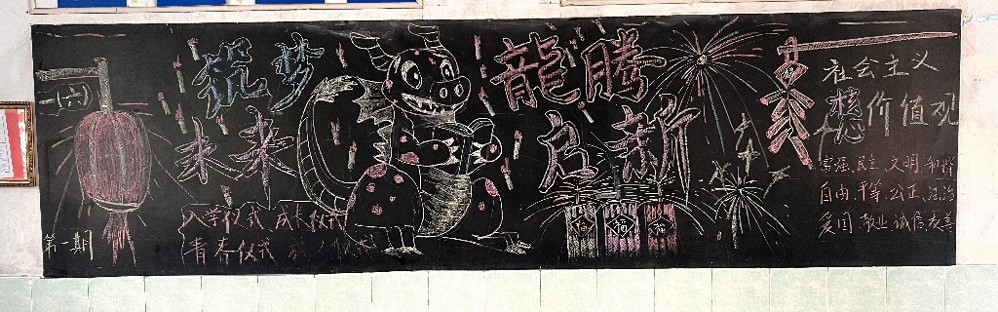 一(六)
第一期
筑梦
未来
入学仪式 成长仪式
青春仪式 成人仪式
龍腾
启新
福 福 福
社会主义
核心价值观
富强、民主、文明、和谐
自由、平等、公正、法治
爱国、敬业、诚信、友善